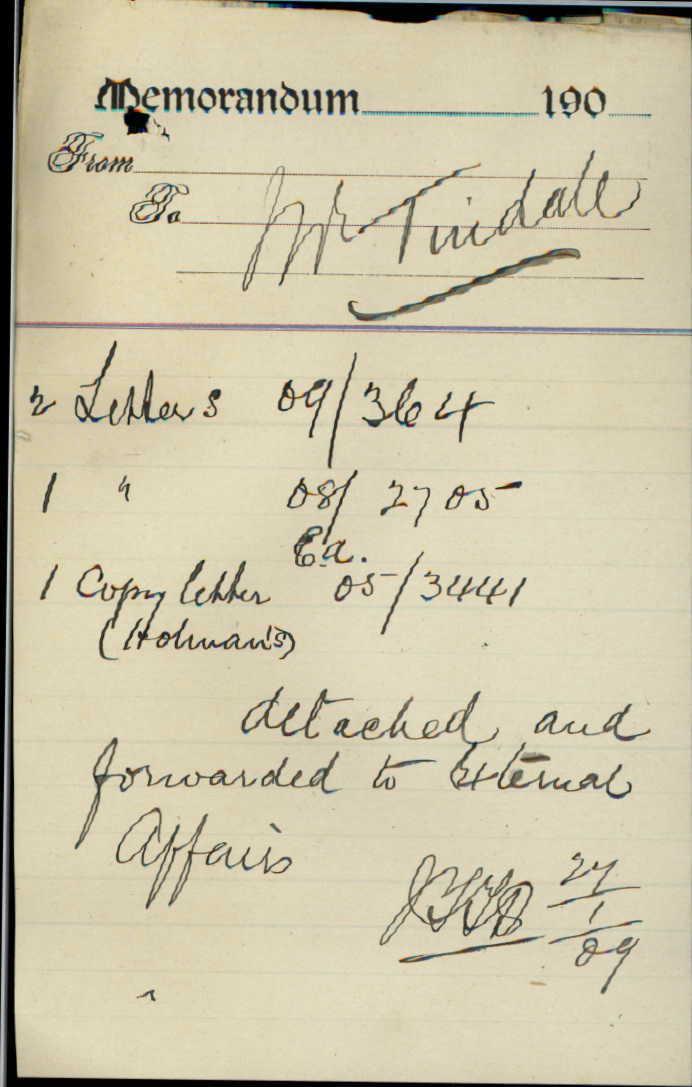 Memorandum 190
From
To Mr Tindale
2 Letters 09/364
1 " 08/2705
Ea.
1 Copy letter 05/3441
(Holman's)
detached and
forwarded to External
Affairs
27
1
09